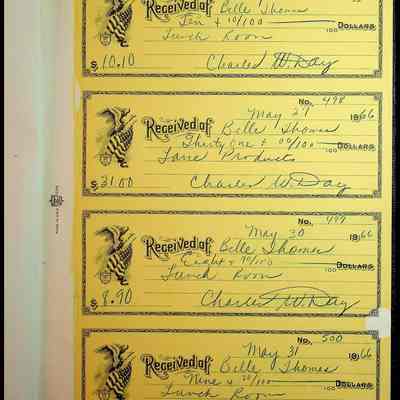 Received of Belle Thomas
Ten + 10/100 DOLLARS
100
Lunch Room
$10.10 Charles W. Day
No. 498
May 27 1966
Received of Belle Thomas
Thirty One + 00/100 DOLLARS
100
Products
$31.00 Charles W. Day
No. 499
May 30 1966
Received of Belle Thomas
Eight + 90/100 DOLLARS
100
Lunch Room
$8.90 Charles W. Day
No. 500
May 31 1966
Received of Belle Thomas
Nine + 20/100 DOLLARS
100
Lunch Room